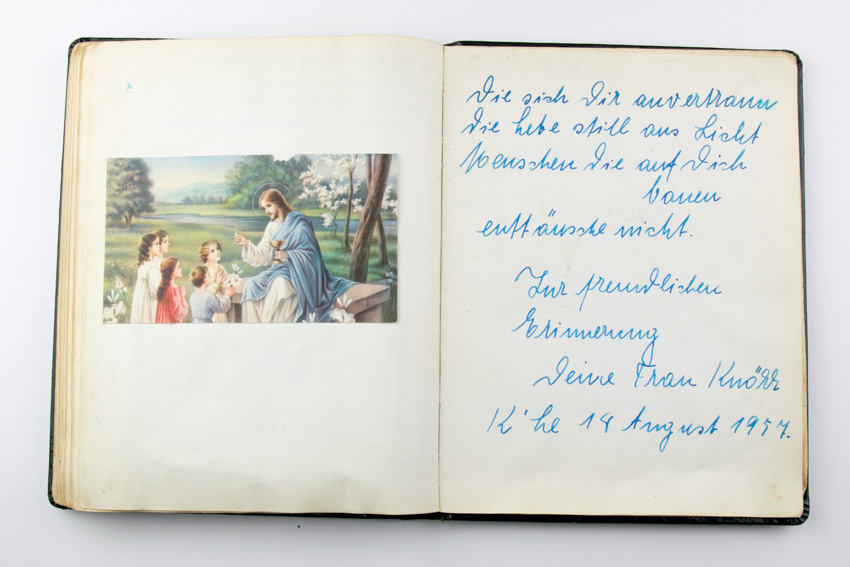 Die sich Dir anvertraun
die hebe still ans Licht
Menschen die auf Dich
bauen
enttäusche nicht.
Zur freundlichen
Erinnerung
Deine Frau
K'he 18 August 1957.